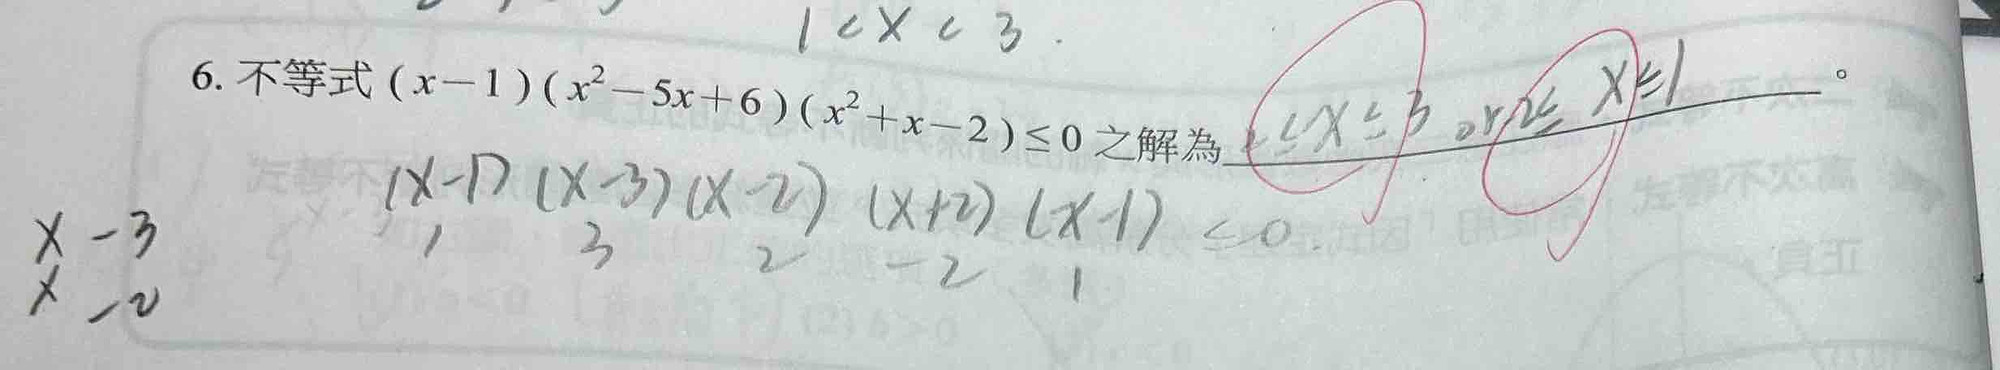 1 < x < 3 .
6. 不等式 (x-1)(x²-5x+6)(x²+x-2)≤0 之解為 2≤x≤3 or 2≤ x≤1 。
(x-1) (x-3)(x-2) (x+2) (x-1) ≤0.
1 3 2 -2 1
x -3
x -2